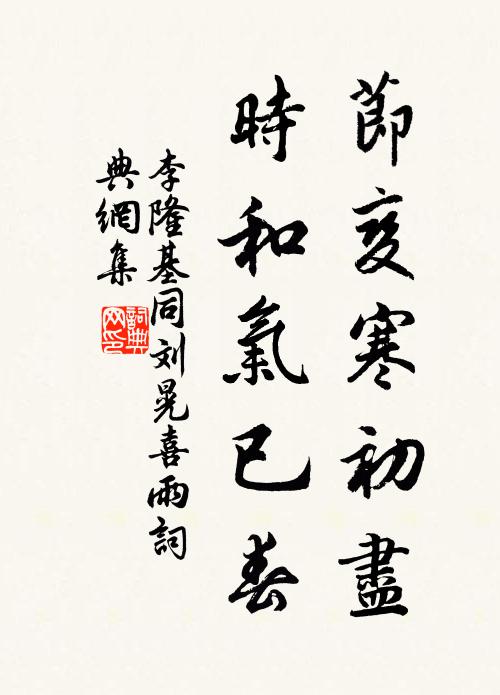 節変寒初盡
時和氣已春
李隆基同刘晃喜雨詞
典網集
詞典
网印